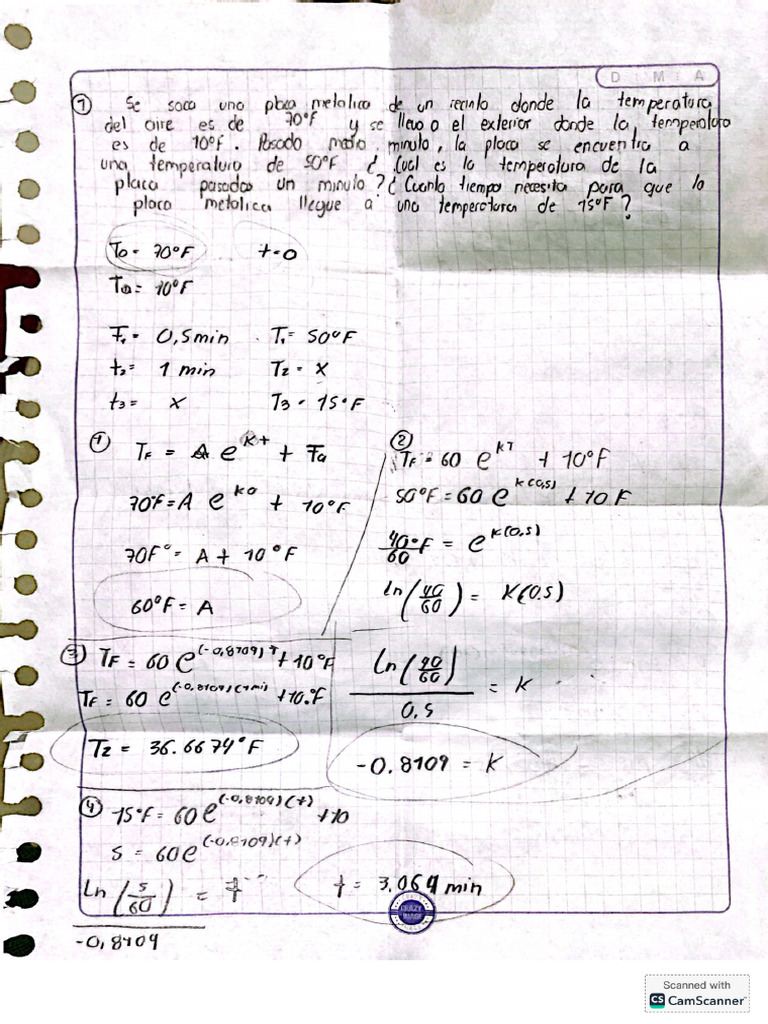 D M A
① Se saca una placa metalica de un recinto donde la temperatura
del aire es de 70°F y se lleva a el exterior donde la temperatura
es de 10°F. Pasado medio minuto, la placa se encuentra a
una temperatura de 50°F ¿ Cual es la temperatura de la
placa pasados un minuto? ¿ Cuanto tiempo necesita para que la
placa metalica llegue a una temperatura de 15°F?
To = 70°F t=0
Ta = 10°F
t₁ = 0,5min T₁ = 50°F
t₂ = 1 min T₂ = x
t₃ = x T₃ = 15°F
①
T_F = A e^{kt} + Ta
70°F = A e^{k0} + 10°F
70F° = A + 10°F
60°F = A
②
T_F = 60 e^{kT} + 10°F
50°F = 60 e^{k(0,5)} + 10 F
40°F/60 = e^{k(0,5)}
ln(40/60) = K(0.5)
ln(40/60)/0,5 = K
-0.8109 = K
③ T_F = 60 e^{(-0,8109)T} + 10°F
T_F = 60 e^{(-0,8109)(1min)} + 10°F
T₂ = 36.6674°F
④ 15°F = 60e^{(-0,8109)(t)} + 10
5 = 60e^{(-0,8109)(t)}
ln(5/60)/-0,8109 = t
t = 3.064 min
CRAZY
Scanned with
CS CamScanner